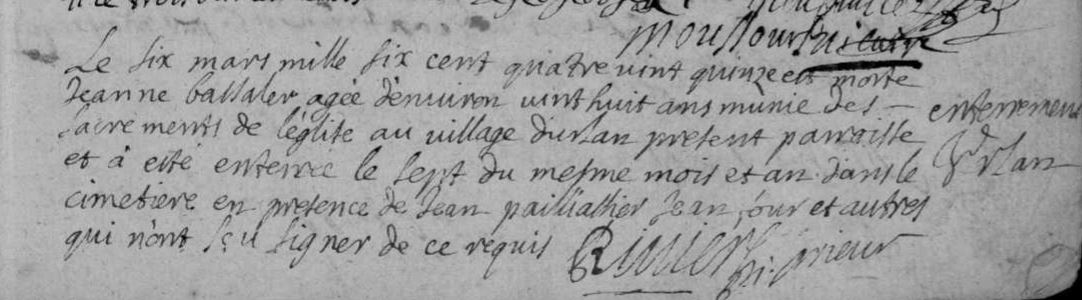 moussour vicaire
Le six mars mille six cent quatre vint quinze est morte
Jeanne bassaler agée d'enuiron uint huit ans munie des
sacrements de l'églite au village durlan present parroisse
et à esté enterrée le sept du mesme mois et an dans le
cimetiere en presence de Jean pailliassier Jean four et autres
qui n'ont sçu signer de ce requis
enterrement
d'urlan
Riuier prieur